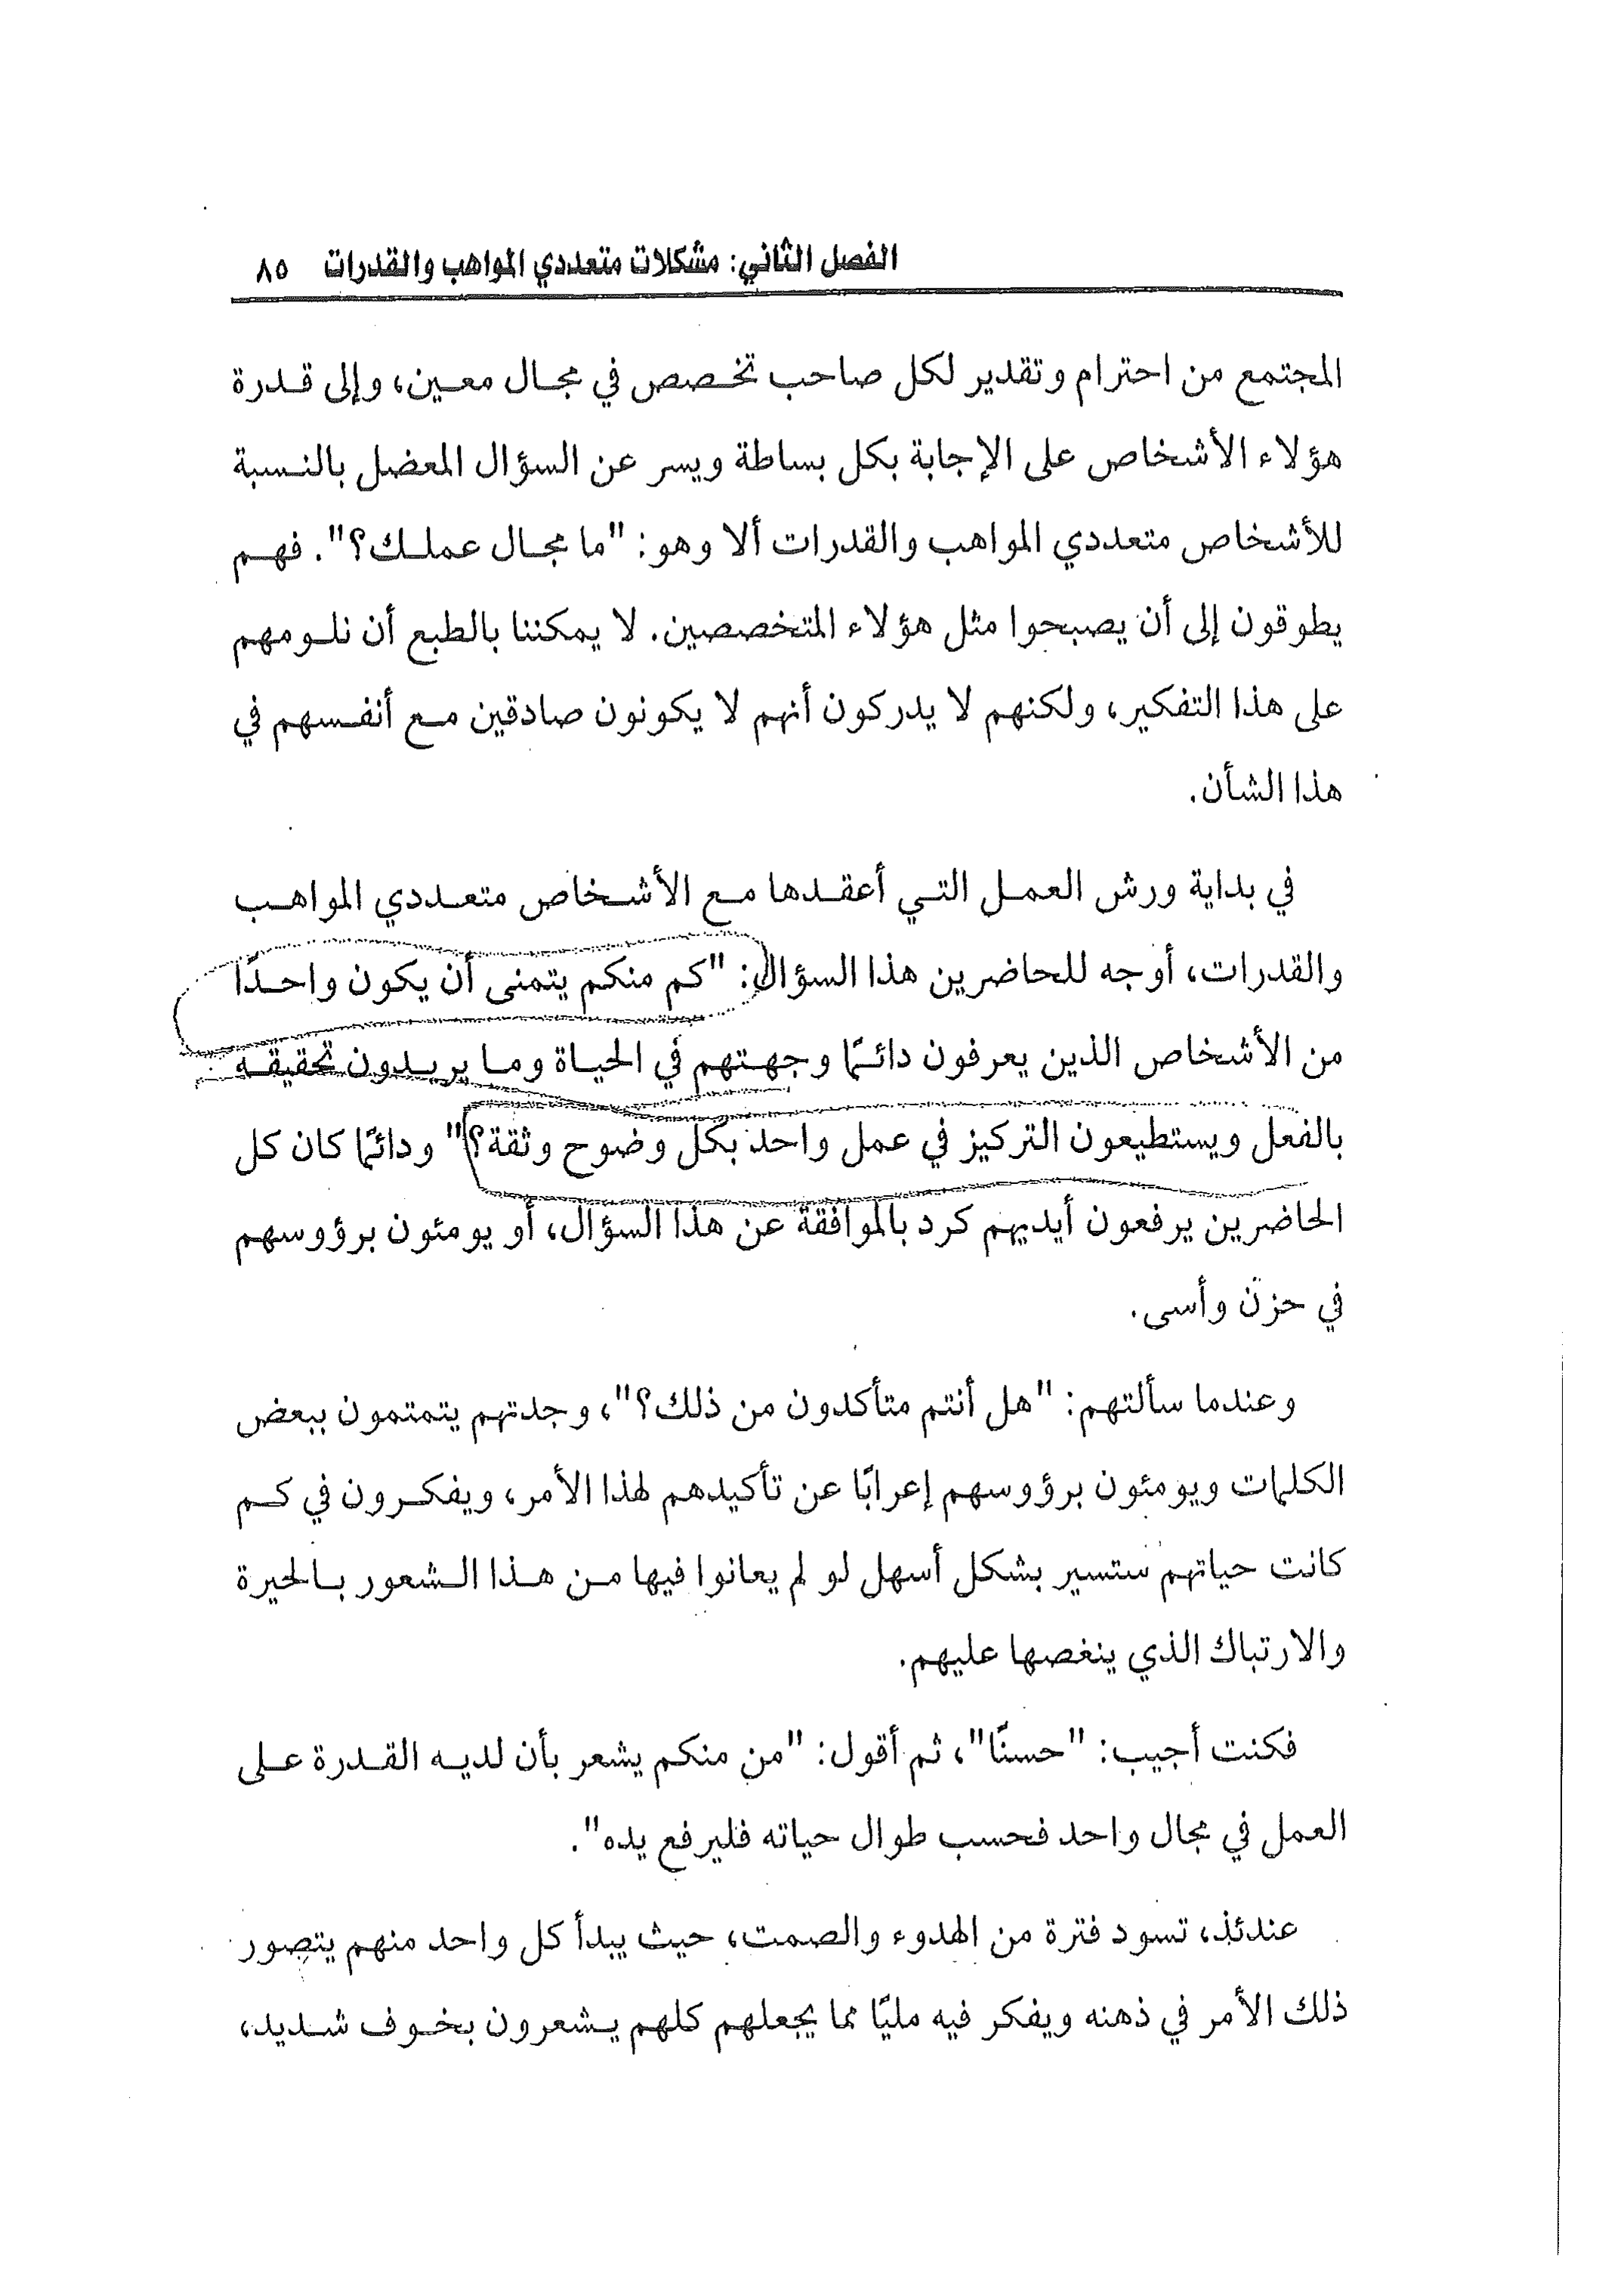 الفصل الثاني: مشكلات متعددي المواهب والقدرات ٨٥
المجتمع من احترام وتقدير لكل صاحب تخصص في مجال معين، وإلى قدرة
هؤلاء الأشخاص على الإجابة بكل بساطة ويسر عن السؤال المعضل بالنسبة
للأشخاص متعددي المواهب والقدرات ألا وهو: "ما مجال عملك؟". فهم
يطوقون إلى أن يصبحوا مثل هؤلاء المتخصصين. لا يمكننا بالطبع أن نلومهم
على هذا التفكير، ولكنهم لا يدركون أنهم لا يكونون صادقين مع أنفسهم في
هذا الشأن.
في بداية ورش العمل التي أعقدها مع الأشخاص متعددي المواهب
والقدرات، أوجه للحاضرين هذا السؤال: "كم منكم يتمنى أن يكون واحدًا
من الأشخاص الذين يعرفون دائمًا وجهتهم في الحياة وما يريدون تحقيقه
بالفعل ويستطيعون التركيز في عمل واحد بكل وضوح وثقة؟" ودائمًا كان كل
الحاضرين يرفعون أيديهم كرد بالموافقة عن هذا السؤال، أو يومئون برؤوسهم
في حزن وأسى.
وعندما سألتهم: "هل أنتم متأكدون من ذلك؟"، وجدتهم يتمتمون ببعض
الكلمات ويومئون برؤوسهم إعرابًا عن تأكيدهم لهذا الأمر، ويفكرون في كم
كانت حياتهم ستسير بشكل أسهل لو لم يعانوا فيها من هذا الشعور بالحيرة
والارتباك الذي ينغصها عليهم.
فكنت أجيب: "حسنًا"، ثم أقول: "من منكم يشعر بأن لديه القدرة على
العمل في مجال واحد فحسب طوال حياته فليرفع يده".
عندئذ، تسود فترة من الهدوء والصمت، حيث يبدأ كل واحد منهم يتصور
ذلك الأمر في ذهنه ويفكر فيه مليًا مما يجعلهم كلهم يشعرون بخوف شديد،